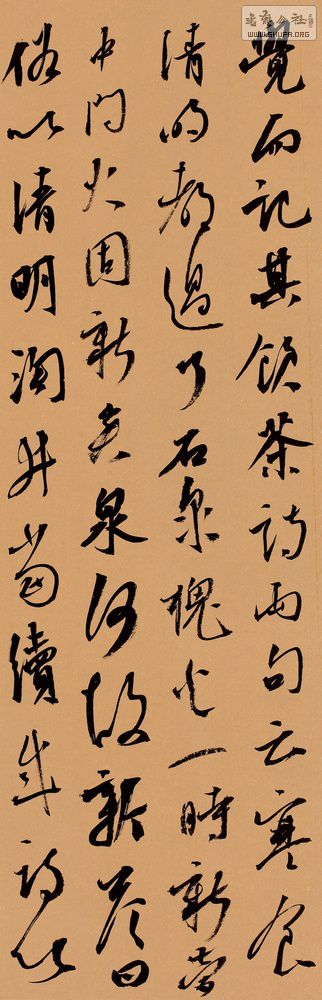 覺而記其飲茶詩兩句云寒食
清明都過了石泉槐火一時新夢
中問火固新矣泉何故新答曰
俗以清明淘井當續成詩以
WWW.SHUFA.ORG